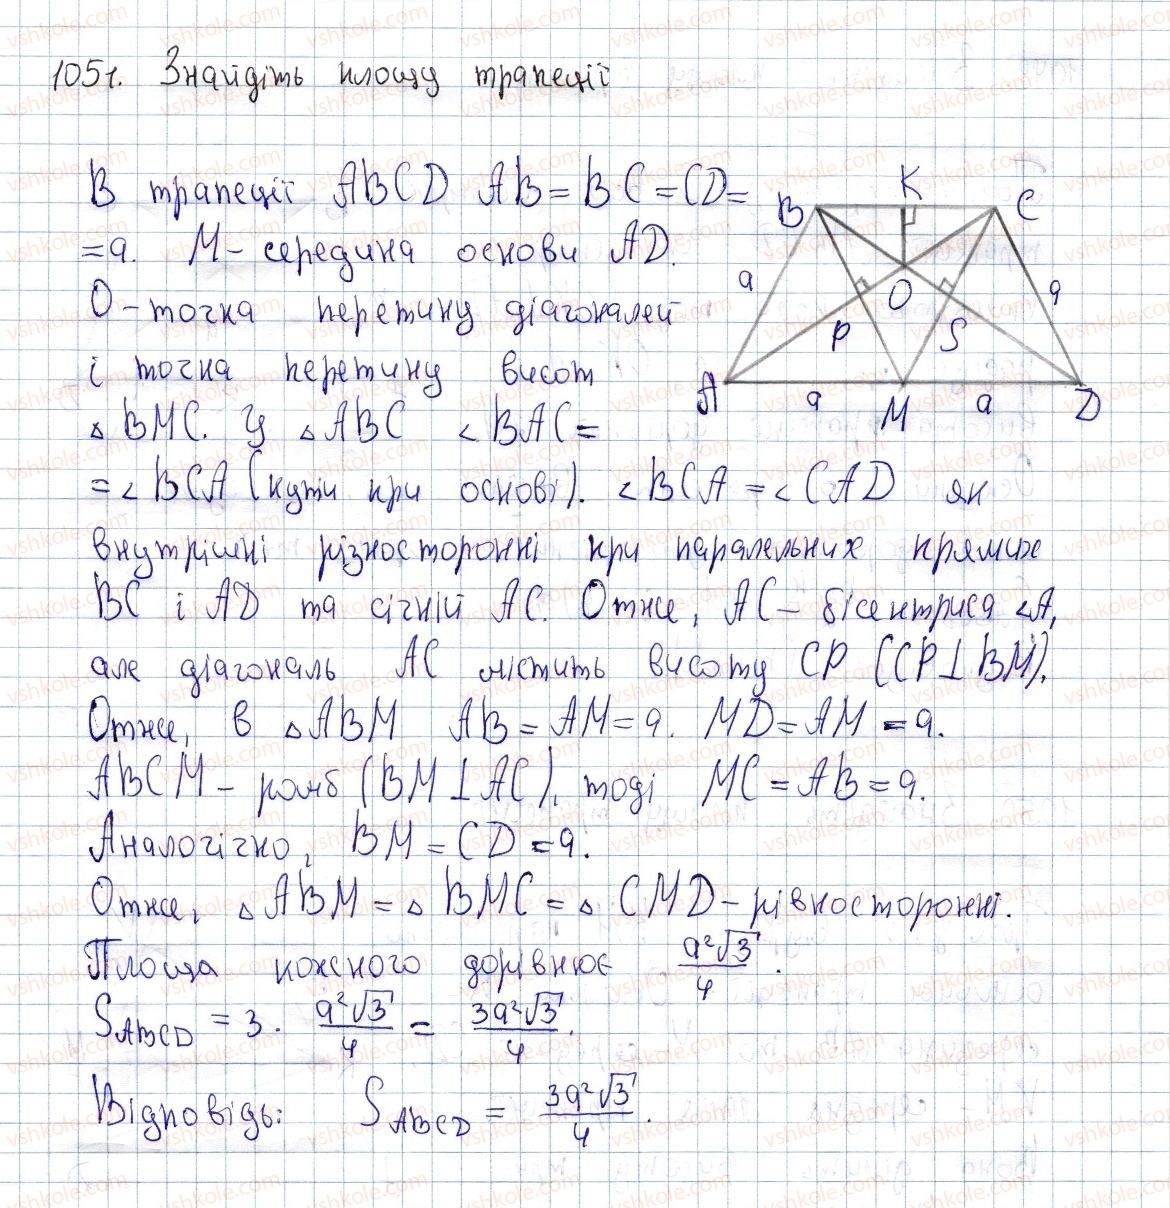 1051. Знайдіть площу трапеції
В трапеції ABCD AB = BC = CD =
= a. M - середина основи AD.
O - точка перетину діагоналей
і точка перетину висот
△ BMC. У △ ABC ∠ BAC =
= ∠ BCA (кути при основі). ∠ BCA = ∠ CAD як
внутрішні різносторонні при паралельних прямих
BC і AD та січній AC. Отже, AC - бісектриса ∠A,
але діагональ AC містить висоту CP (CP ⊥ BM).
Отже, в △ ABM AB = AM = a. MD = AM = a.
ABCM - ромб (BM ⊥ AC), тоді MC = AB = a.
Аналогічно, BM = CD = a.
Отже, △ ABM = △ BMC = △ CMD - рівносторонні.
Площа кожного дорівнює a²√3/4.
S ABCD = 3 · a²√3/4 = 3a²√3/4.
Відповідь: S ABCD = 3a²√3/4.
B K C
a O a
P S
A a M a D
vshkole.com